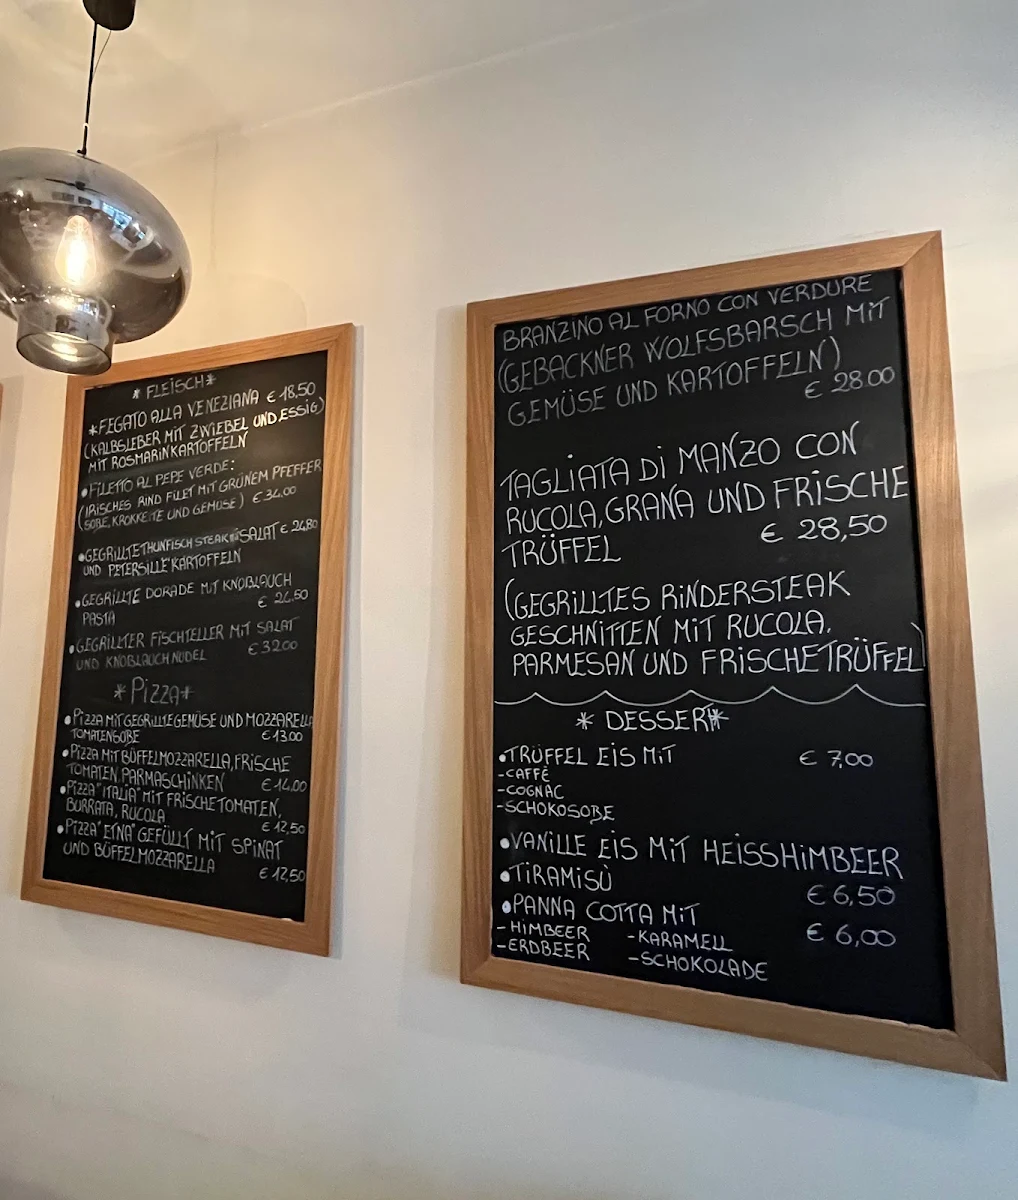 * FLEISCH *
* FEGATO ALLA VENEZIANA € 18,50
(KALBSLEBER MIT ZWIEBEL UND, ESSIG)
MIT ROSMARINKARTOFFELN
• FILETTO AL PEPE VERDE:
(IRISCHES RIND FILET MIT GRÜNEM PFEFFER
SOßE, KROKKETTE UND GEMÜSE) € 34.00
• GEGRILLTE THUNFISCH STEAK MIT SALAT € 24,80
UND PETERSILLE KARTOFFELN
• GEGRILLTE DORADE MIT KNOBLAUCH
PASTA € 24.50
• GEGRILLTER FISCHTELLER MIT SALAT
UND KNOBLAUCH NUDEL € 32.00
* PIZZA *
• PIZZA MIT GEGRILLTE GEMÜSE UND MOZZARELLA
TOMATENSOßE € 13.00
• PIZZA MIT BÜFFELMOZZARELLA, FRISCHE
TOMATEN, PARMASCHINKEN € 14,00
• PIZZA "ITALIA" MIT FRISCHE TOMATEN,
BURRATA, RUCOLA € 12,50
• PIZZA "ETNA" GEFÜLLT MIT SPINAT
UND BÜFFELMOZZARELLA € 12,50
BRANZINO AL FORNO CON VERDURE
(GEBACKNER WOLFSBARSCH MIT
GEMÜSE UND KARTOFFELN)
€ 28.00
TAGLIATA DI MANZO CON
RUCOLA, GRANA UND FRISCHE
TRÜFFEL € 28,50
(GEGRILLTES RINDERSTEAK
GESCHNITTEN MIT RUCOLA,
PARMESAN UND FRISCHE TRÜFFEL)
* DESSERT *
• TRÜFFEL EIS MIT € 7,00
- CAFFÉ
- COGNAC
- SCHOKOSOßE
• VANILLE EIS MIT HEISSHIMBEER
• TIRAMISÙ € 6,50
• PANNA COTTA MIT € 6,00
- HIMBEER - KARAMELL
- ERDBEER - SCHOKOLADE